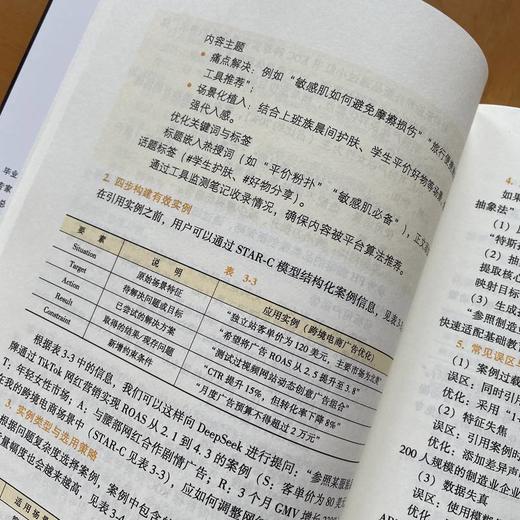 内容主题
• 痛点解决：例如“敏感肌如何避免摩擦损伤”“旅行
工具推荐”；
• 场景化植入：结合上班族晨间护肤、学生平价好物等场景
强代入感。
优化关键词与标签
标题嵌入热搜词（如“平价粉扑”“敏感肌必备”），正文
话题标签（#学生护肤、#好物分享）。
通过工具监测笔记收录情况，确保内容被平台算法推荐。
2. 四步构建有效实例
在引用实例之前，用户可以通过 STAR-C 模型结构化案例信息，见表3-
表 3-3
要素 说明 应用实例（跨境电商广告优化）
Situation 原始场景特征 “独立站客单价为 120 美元，主要市场为北美”
Target 待解决问题或目标 “希望将广告 ROAS 从 2.5 提升至 3.8”
Action 已尝试的解决方案 “测试过视频网站动态创意广告组合”
Result 取得的结果/现存问题 “CTR 提升 15%，但转化率下降 8%”
Constraint 新增约束条件 “月度广告预算不得超过 2 万元”
根据表 3-3 中的信息，我们可以这样向 DeepSeek 进行提问，“参照某
牌通过 TikTok 网红营销实现 ROAS 从 2.1 到 4.3 的案例（S：客单价为 80 美元
T：年轻女性市场；A：与腰部网红合作剧情广告；R：3 个月 GMV 增长
我的跨境电商场景中（STAR-C 见表 3-3），应如何调整网
3. 实例类型与选用策略
根据问题复杂度选择案例，案例中包含的
量幅度也会越来越高，见表
适用场景
毕业
专家
总
4.
如果
抽象法”
（1）
“特斯
（2）抽
提取核心
映射目标
（3）生成
“参照制造
快速适配基础教
5. 常见误区
（1）案例过载
误区：同时引用
优化：采用“1
（2）特征失焦
误区：引用案例时
优化：添加差异声
200 人规模的制造业企业
（3）数据失真
误区：使用模糊
优化